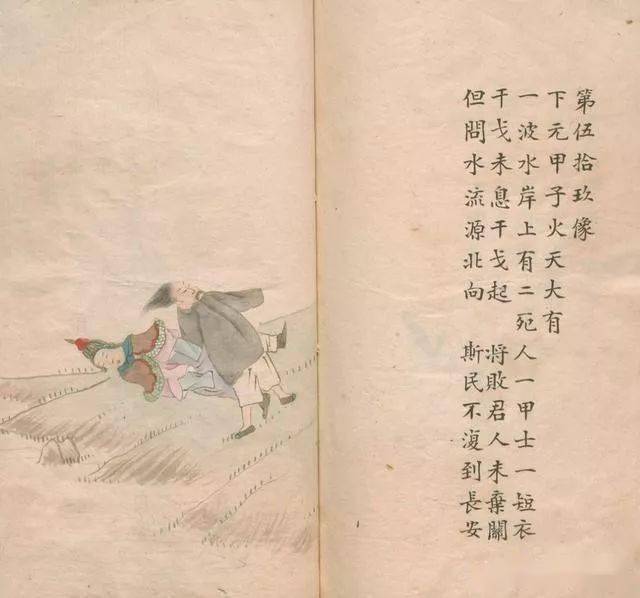 第伍拾玖像
下元甲子火天大有
一波水岸上有二死人一甲士一短衣
干戈未息干戈起　将敗君人未棄關
但問水流源北向　斯民不復到長安